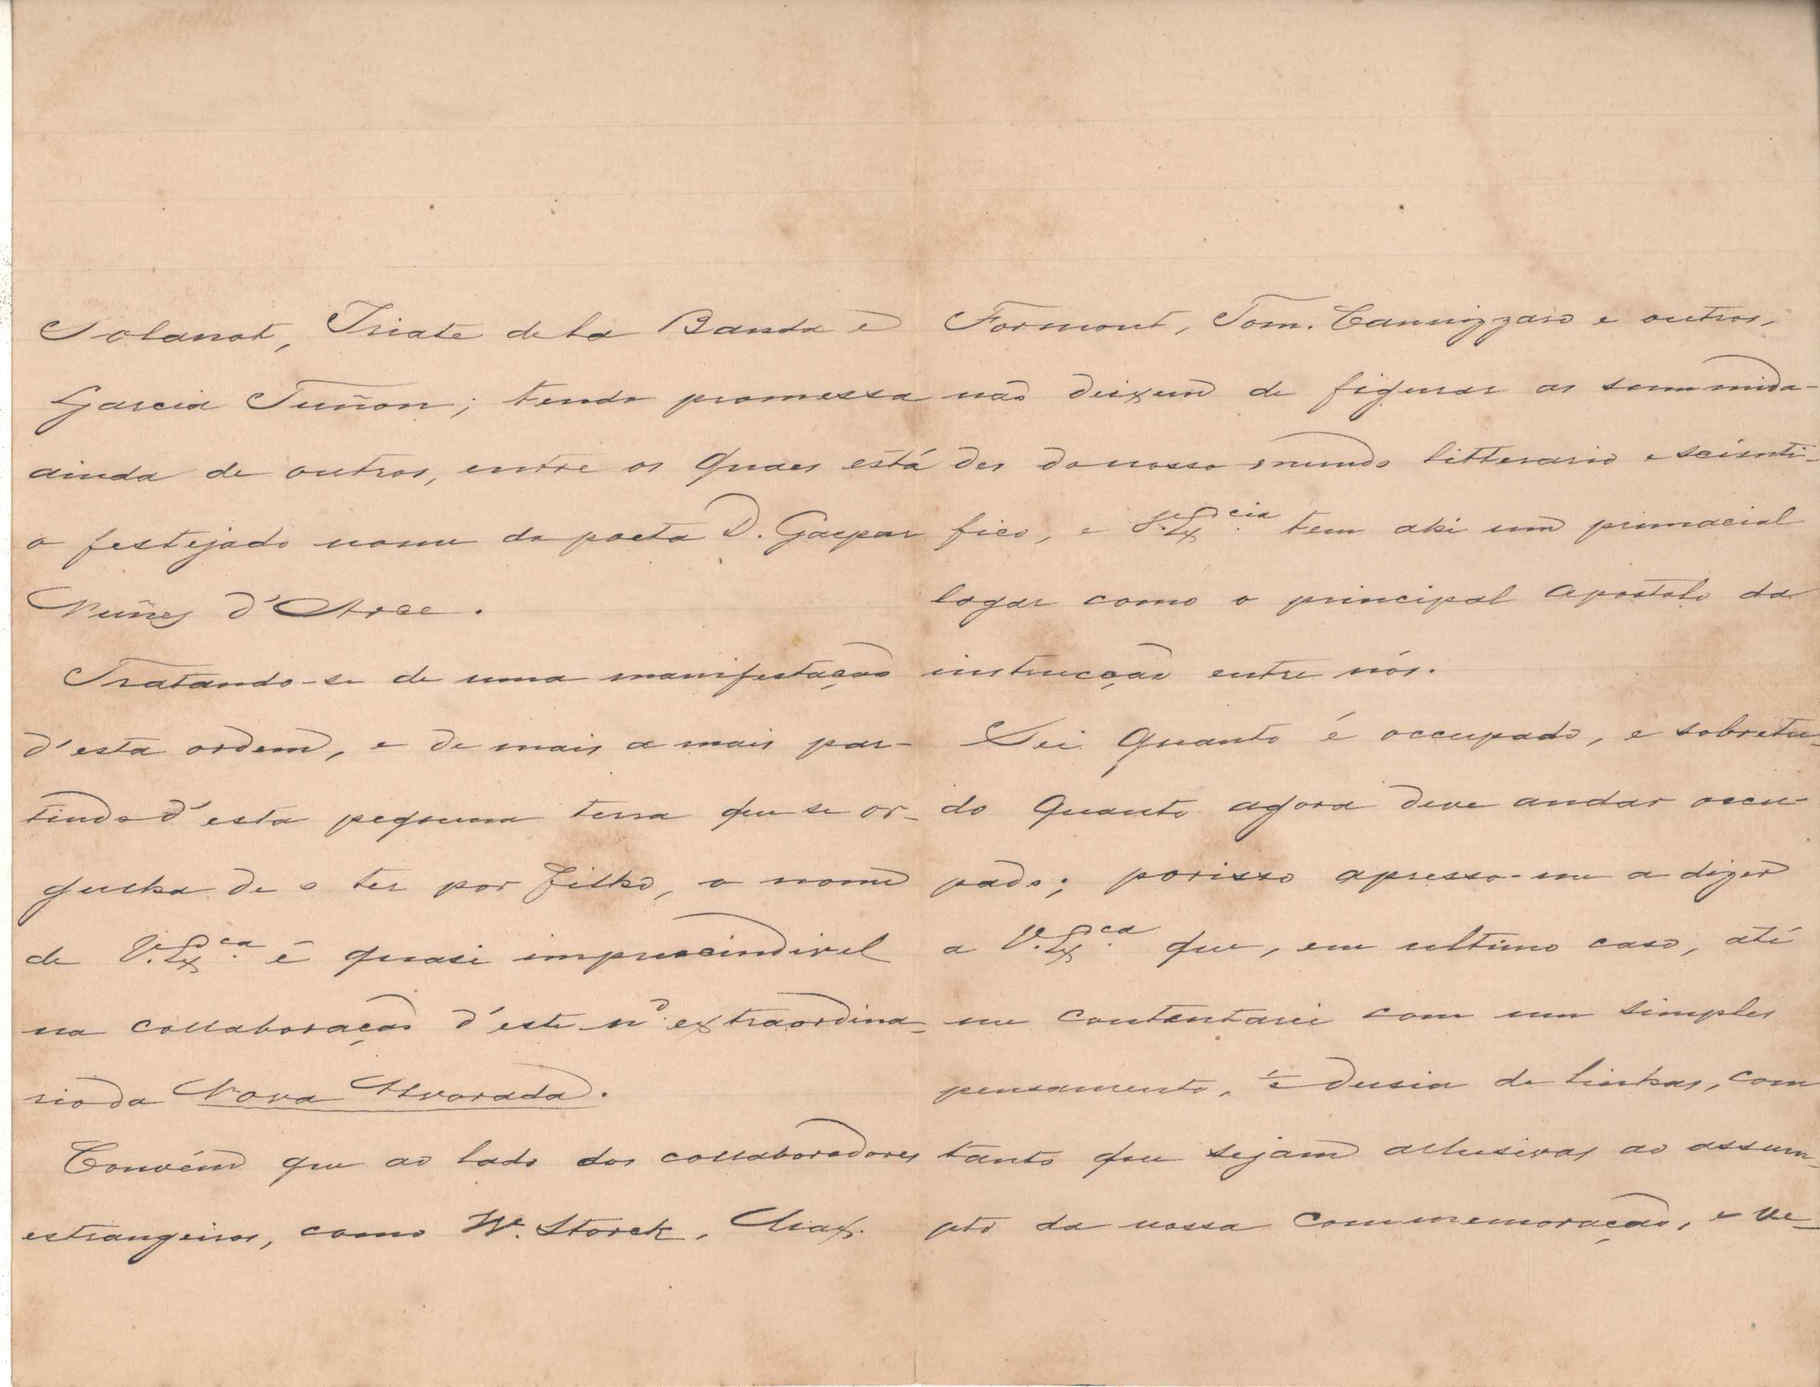 Solanot, Triate de la Banda e
Garcia Tuñon; tendo promessa
ainda de outros, entre os quaes está
o festejado nome do poeta D. Gaspar
Nuñes d'Arce.
Tratando-se de uma manifestação
d'esta ordem, e de mais a mais par-
tindo d'esta pequena terra que se or-
gulha de o ter por filho, o nome
de V. Ex.cia é quasi imprescindivel
na collaboração d'este nº extraordina-
rio da Nova Alvorada.
Convém que ao lado dos collaboradores
estrangeiros, como W. Storck, Max.
Formont, Tom. Cannizzaro e outros,
não deixem de figurar as summida-
des do nosso mundo litterario e scienti-
fico, e V. Ex.cia tem ahi um primacial
logar como o principal apostolo da
instrucção entre nós.
Sei quanto é occupado, e sobretu-
do quanto agora deve andar occu-
pado; porisso apresso-me a dizer
a V. Ex.cia que, em ultimo caso, até
me contentarei com um simples
pensamento, ½ dusia de linhas, com
tanto que sejam allusivas ao assum-
pto da nossa commemoração, e ve-